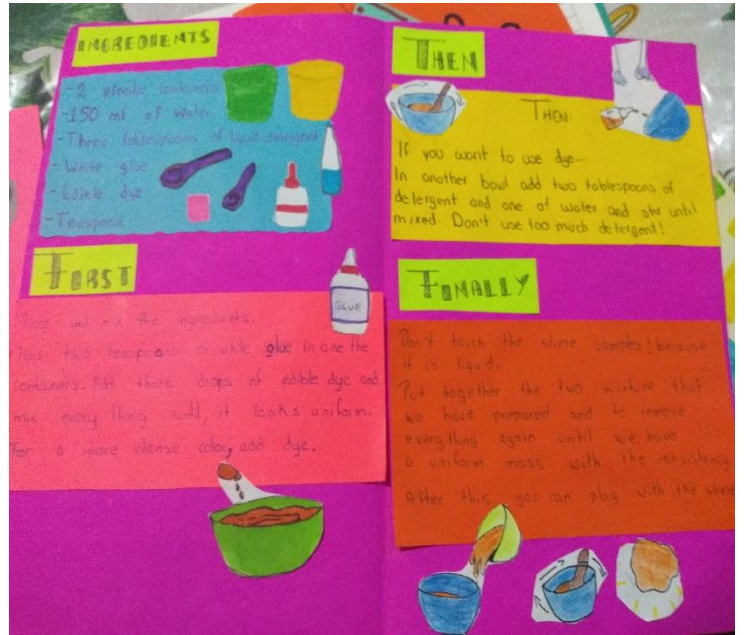 INGREDIENTS
-2 plastic containers
-150 ml of water
-Three tablespoons of liquid detergent
-White glue
-Edible dye
-Teaspoon
FIRST
mix the ingredients.
two teaspoons of white glue in one the
containers. Add three drops of edible dye and
mix every thing until, it looks uniform.
For a more intense color, add dye.
GLUE
THEN
THEN:
If you want to use dye...
In another bowl add two tablespoons of
detergent and one of water and stir until
mixed. Don't use too much detergent!
FINALLY
Don't touch the slime samples! because
it is liquid.
Put together the two mixture that
we have prepared and to remove
everything again until we have
a uniform mass with the consistency.
After this you can play with the slime